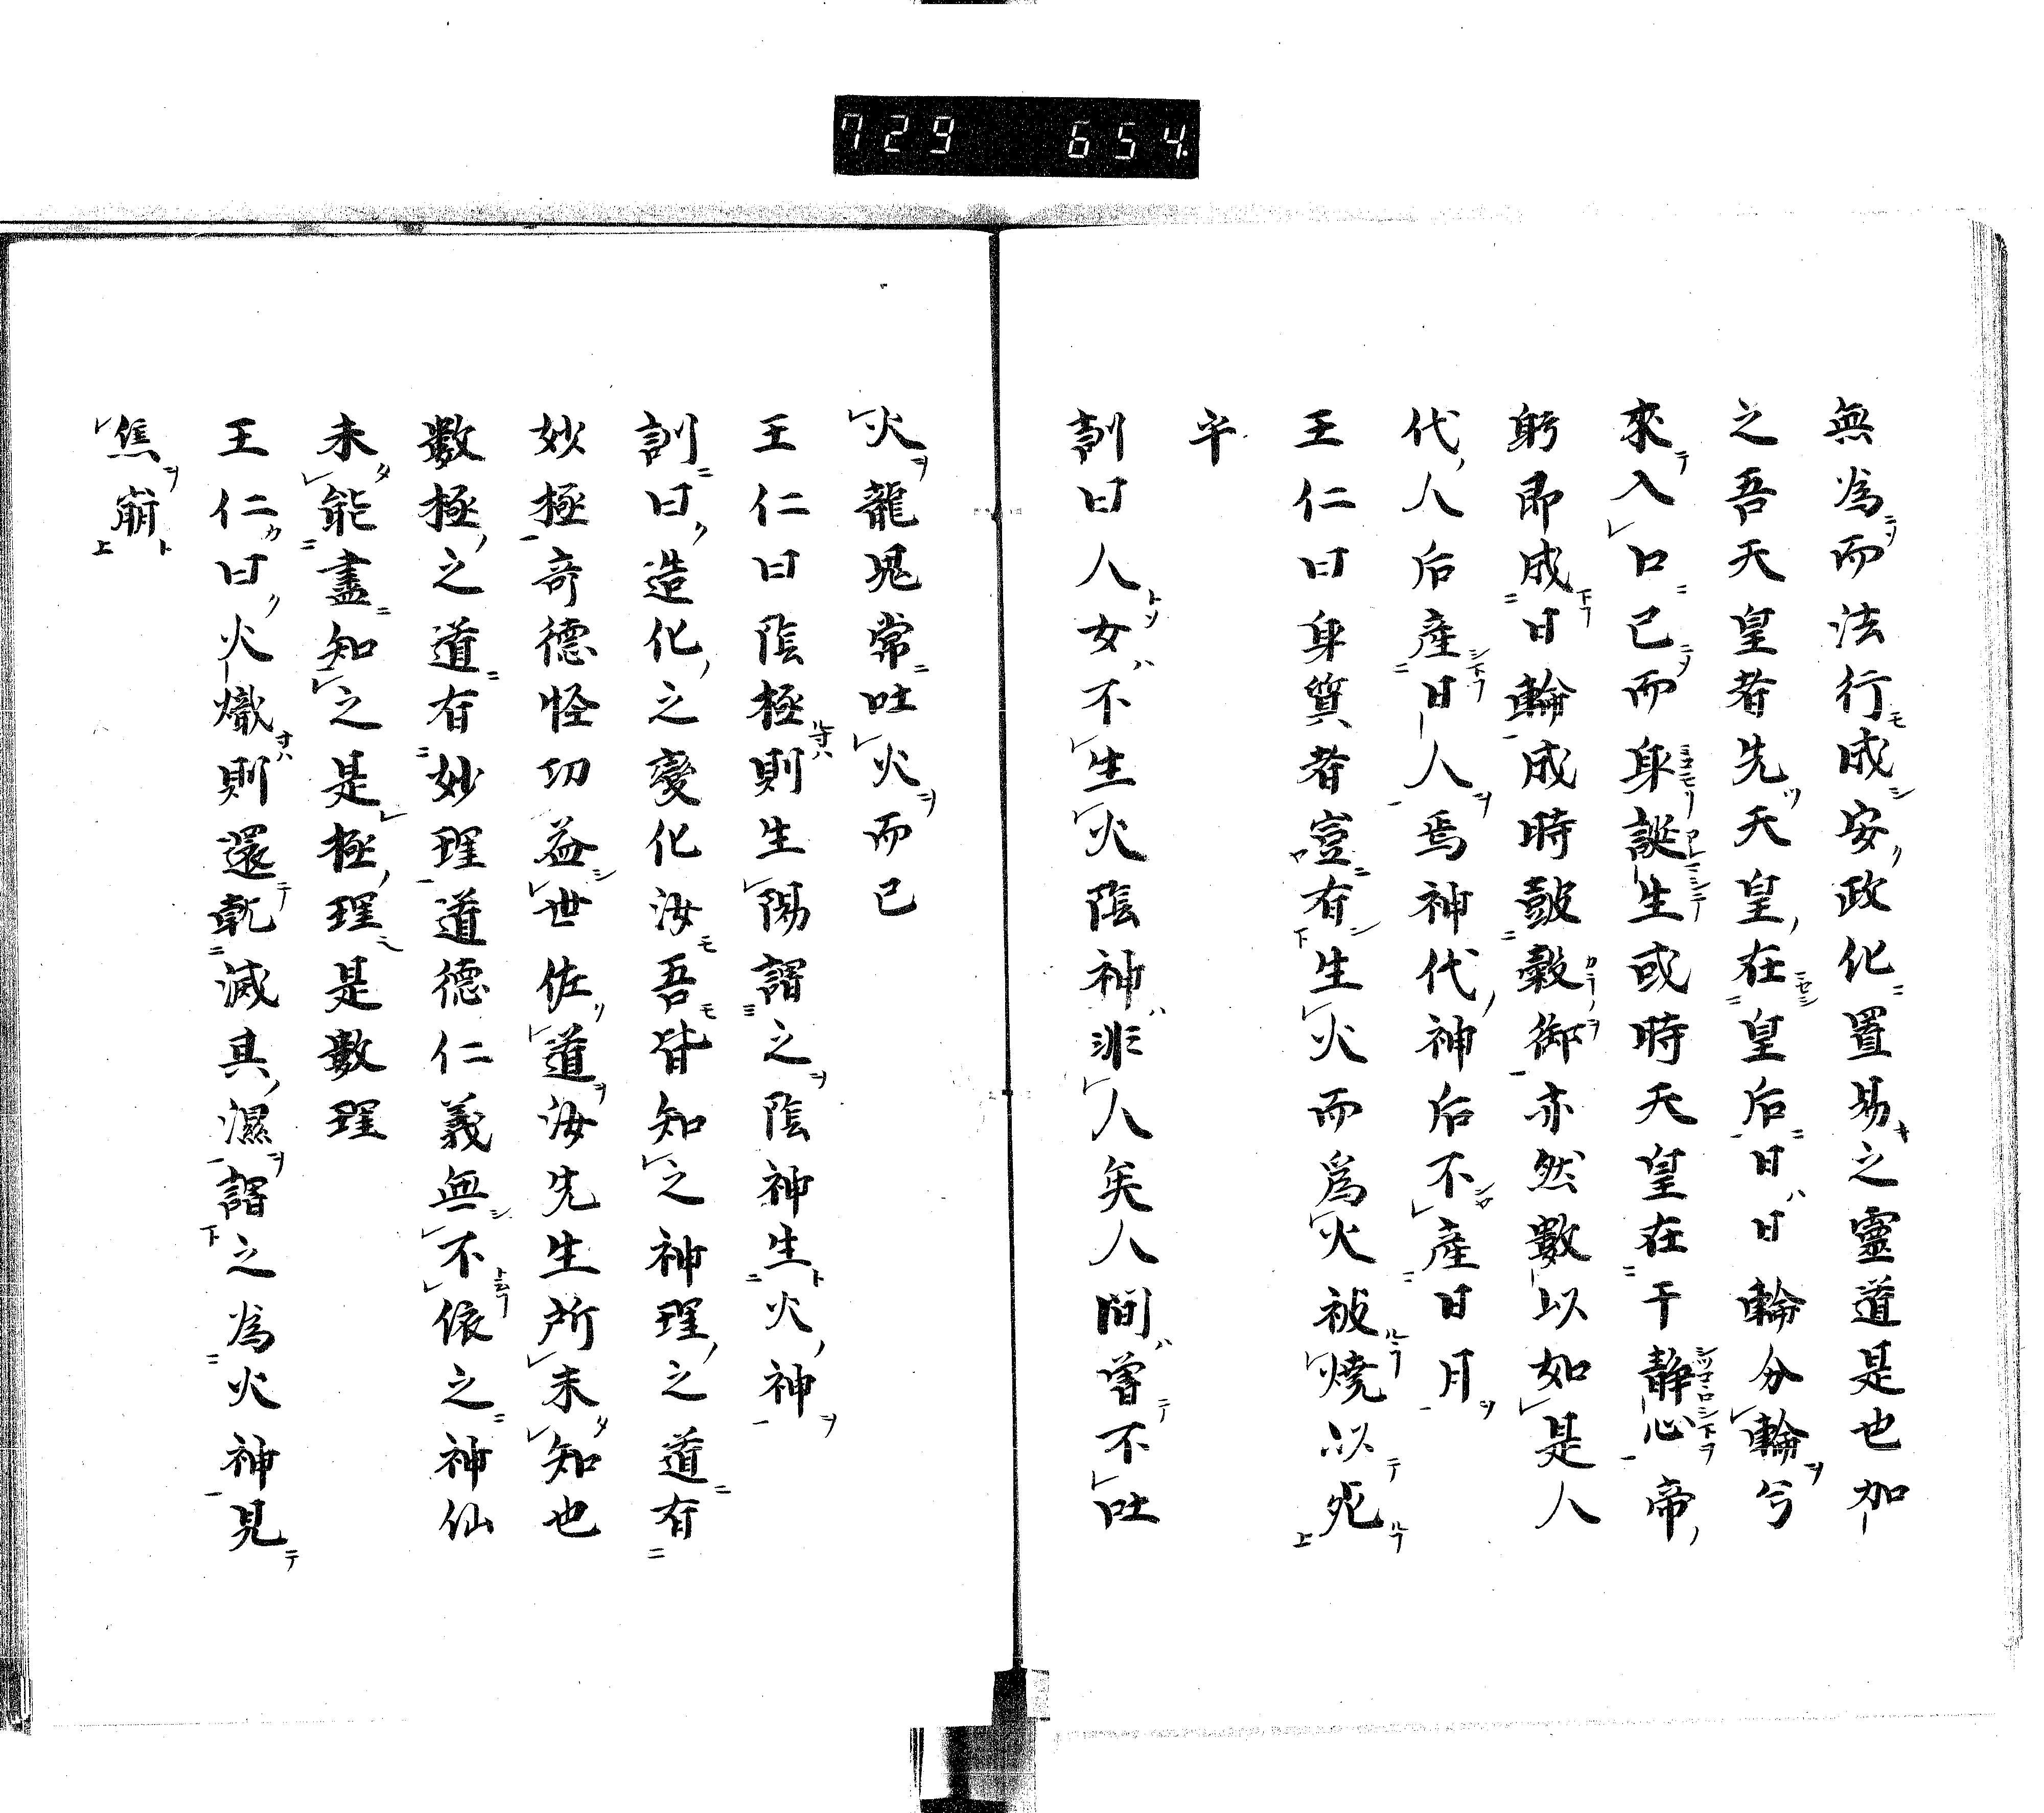 729 654.
無為而法行成安政化置易之靈道是也加
之吾天皇者先天皇在皇后日日輪分輪兮
來入口已而身誕生或時天皇在干静心帝
躬即成日輪成時鼓穀御亦然數以如是人
代人后産日人焉神代神后不産日月
王仁曰身質者豈有生火而為火被燒以死
乎
訓曰人女不生火陰神非人矣人間曾不吐
火龍鬼常吐火而已
王仁曰陰極則生陽謂之陰神生火神
訓曰造化之變化汝吾皆知之神理之道有
妙極奇德怪功益世佐道汝先生所未知也
數極之道有妙理道德仁義無不依之神仙
未能盡知之是極理是數理
王仁曰火熾則還乾滅其濕謂之為火神見
焦崩